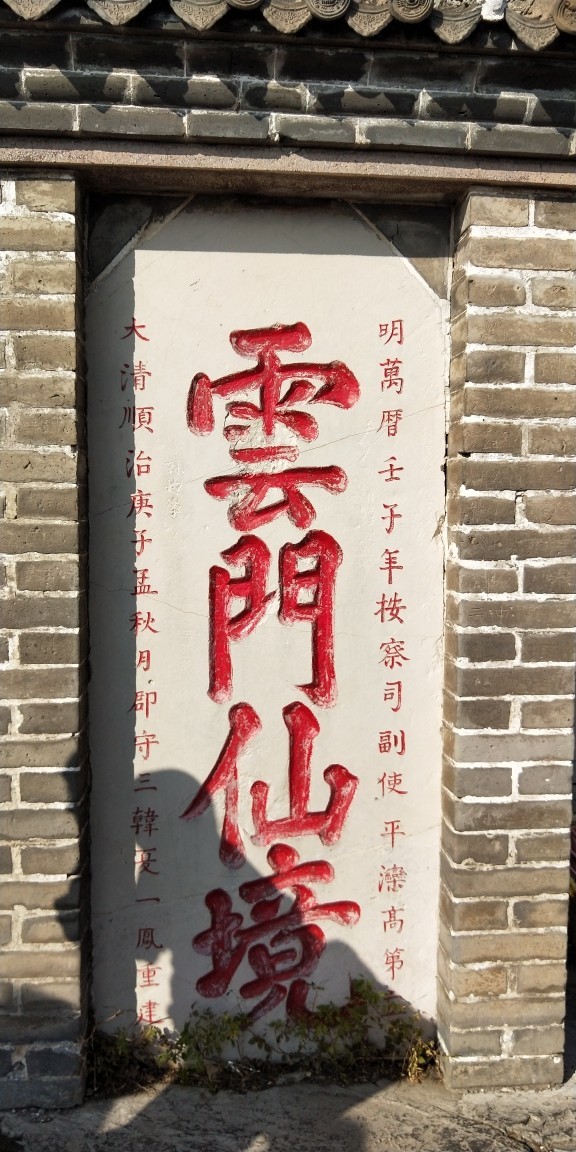 明萬曆壬子年按察司副使平灤高第
雲門仙境
大清順治庚子孟秋月郡守三韓夏一鳳重建